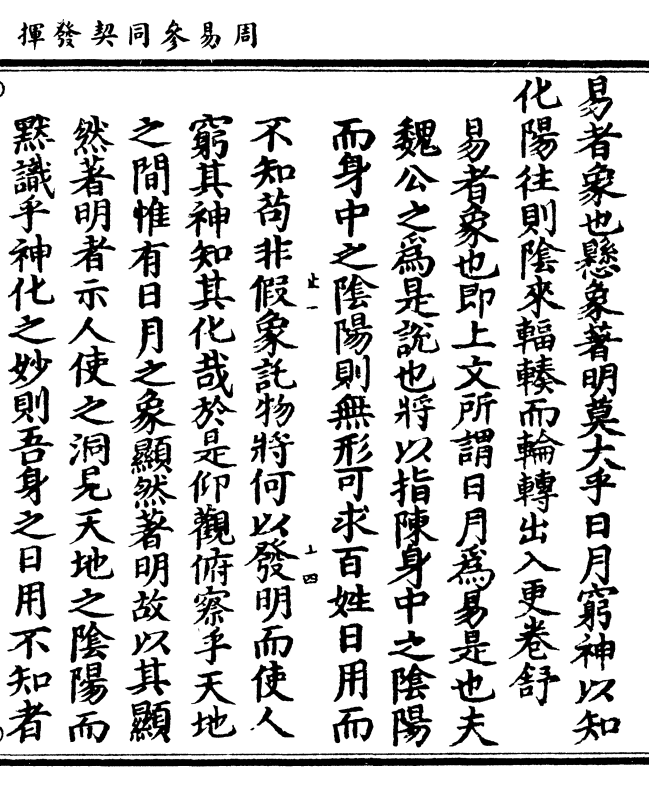 周易參同契發揮
易者象也懸象著明莫大乎日月窮神以知
化陽往則陰來輻輳而輪轉出入更卷舒
易者象也即上文所謂日月爲易是也夫
魏公之爲是說也將以指陳身中之陰陽
而身中之陰陽則無形可求百姓日用而
上一
上四
不知苟非假象託物將何以發明而使人
窮其神知其化哉於是仰觀俯察乎天地
之間惟有日月之象顯然著明故以其顯
然著明者示人使之洞見天地之陰陽而
默識乎神化之妙則吾身之日用不知者